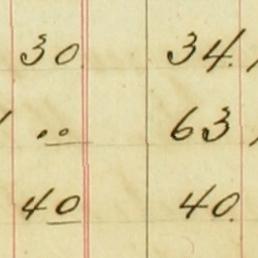 30 34.
.. 63
40 40.